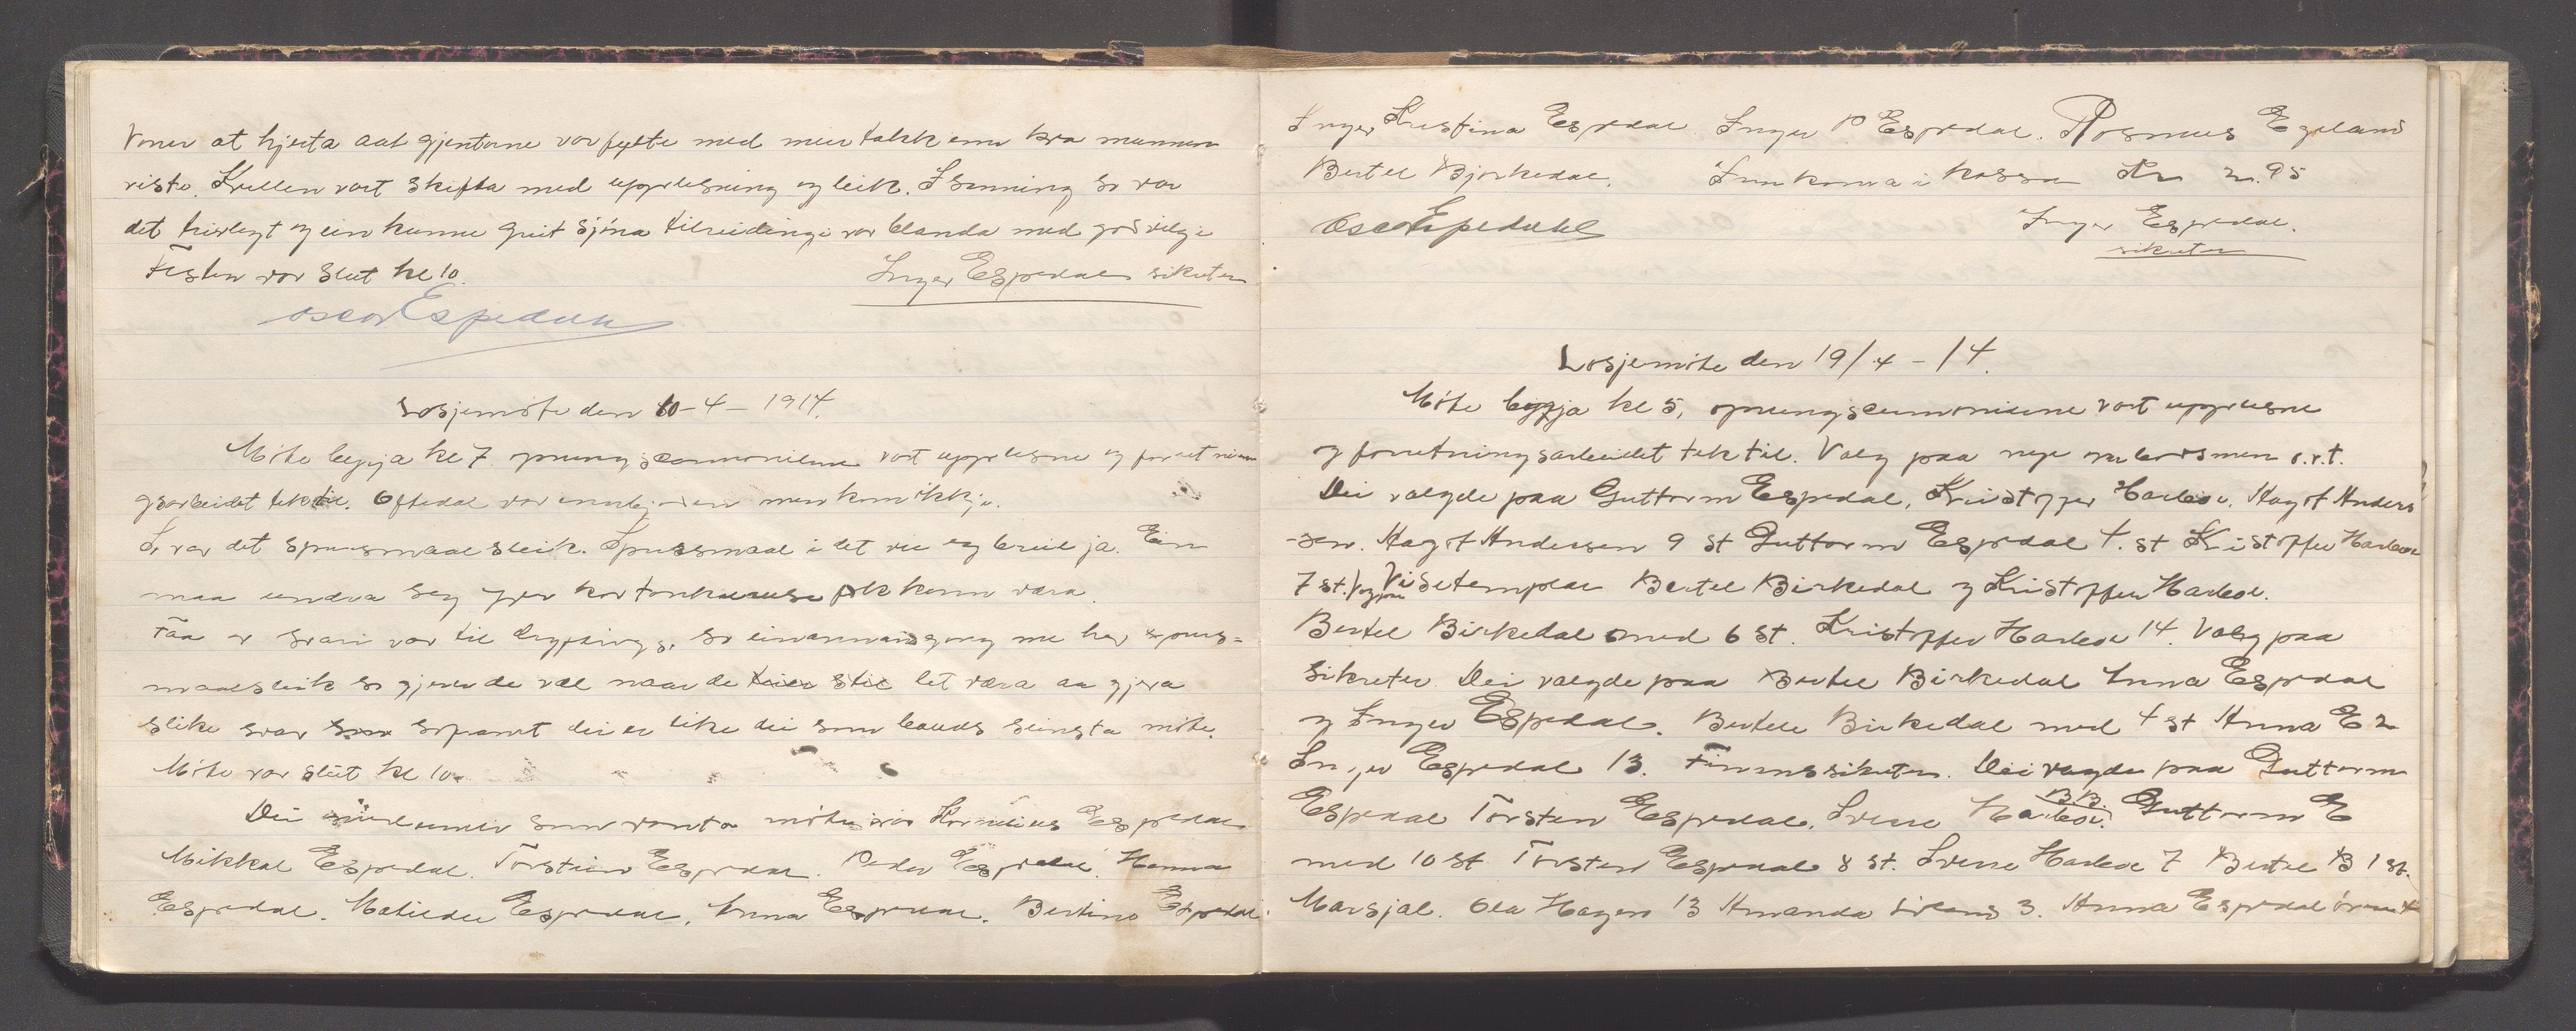 Voner at hjerta aat gjentorne var fyllte med meir takk enn kva munnen
viste. Kvellen vart skifta med upplesning og leik. I sanning so var
det triveleg og ein kunne greit sjóna tilreidingi var blanda med godvilje
Festen var slut kl 10. Inger Espedal sikreter
Oscar Espedahl
Losjemöte den 10-4-1914.
Möte byrja kl 7 opningsceremonierne vart upplesne og forretnin
gsarbeidet tok til. Oftedal var men kom ikkje.
So var det spursmaal sleik. Spursmaal i det vie eg ja. Ein
maa undra seg yver kor folk kann vera.
var til so ein annan gong me har spurs-
maalsleik so gjerer de vel naar de let vera aa gjera
slike svar sopamt dei er like dei som seinsta möte.
Möte var slut kl 10.
Dei medlemer som vanta möte var Kornelius Espedal
Mikkal Espedal. Torstein Espedal. Peder Espedal. Hanna
Espedal. Matilde Espedal, Anna Espedal. Bertine Espedal.
Inger Kristina Espedal Inger P Espedal. Rasmus Egeland
Bertel Bjorkedal. Innkoma i kassa Kr 2.95
Oscar Espedahl Inger Espedal.
sikreter
Losjemöte den 19/4-14.
Möte byrja kl 5, opningsceremonierne vart upplesne
og forretningsarbeidet tok til. Valg paa nye embedsmenn o.r.t.
Dei valgde paa Guttorm Espedal, Kristoffer Haaleos. Hagof Anders
-sen. Hagof Andersen 9 st Guttorm Espedal 4. st Kristoffer Haaleos
7 st. Valg paa Visetemplar Bertel Birkedal og Kristoffer Haaleos.
Bertel Birkedal med 6 st. Kristoffer Haaleos 14. Valg paa
Sikreter. Dei valgde paa Bertel Birkedal Anna Espedal
og Inger Espedal. Bertel Birkedal med 4 st Anna E 2
Inger Espedal 13. Finanssikreter. Dei valgde paa Guttorm
Espedal Torsten Espedal. Svene Haaleos. B.B. Guttorm E
med 10 st Torsten Espedal 8 st. Svene Haaleos 7 Bertel B 1 st.
Marsjal. Ola Hagen 13 Amanda 3. Anna Espedal